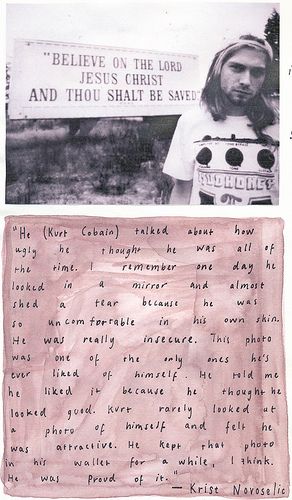 "BELIEVE ON THE LORD
JESUS CHRIST
AND THOU SHALT BE SAVED"
MUDHONEY
"He (Kurt Cobain) talked about how
ugly he thought he was all of
the time. I remember one day he
looked in a mirror and almost
shed a tear because he was
so uncomfortable in his own skin.
He was really insecure. This photo
was one of the only ones he's
ever liked of himself. He told me
he liked it because he thought he
looked good. Kurt rarely looked at
a photo of himself and felt he
was attractive. He kept that photo
in his wallet for a while, I think.
He was proud of it." — Krist Novoselic